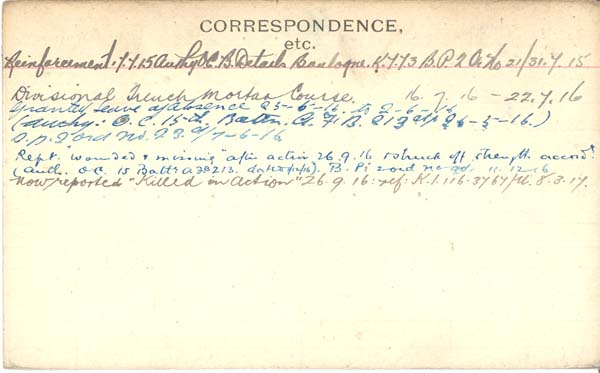 CORRESPONDENCE,
etc.
Reinforcement. 7.7.15 Authy O.C. B. Details Boulogne. K.7.73 B.P 2 O. No 21/31.7.15
Divisional Trench Mortar Course. 16.7.16 - 22.7.16
Granted leave of absence 25-5-16 to 2-6-16
(Authy: O.C. 15th Battn. A.F.B. 213 26-5-16.)
ord No. 23 7-6-16
Rept. wounded & missing after action 26.9.16 & struck off strength accord
(Auth. O.C. 15 Battn A 213. B. Pt 2 ord no 11.12.16
now reported "Killed in action" 26.9.16: ref: K.1.116.3767/ 8.3.17.